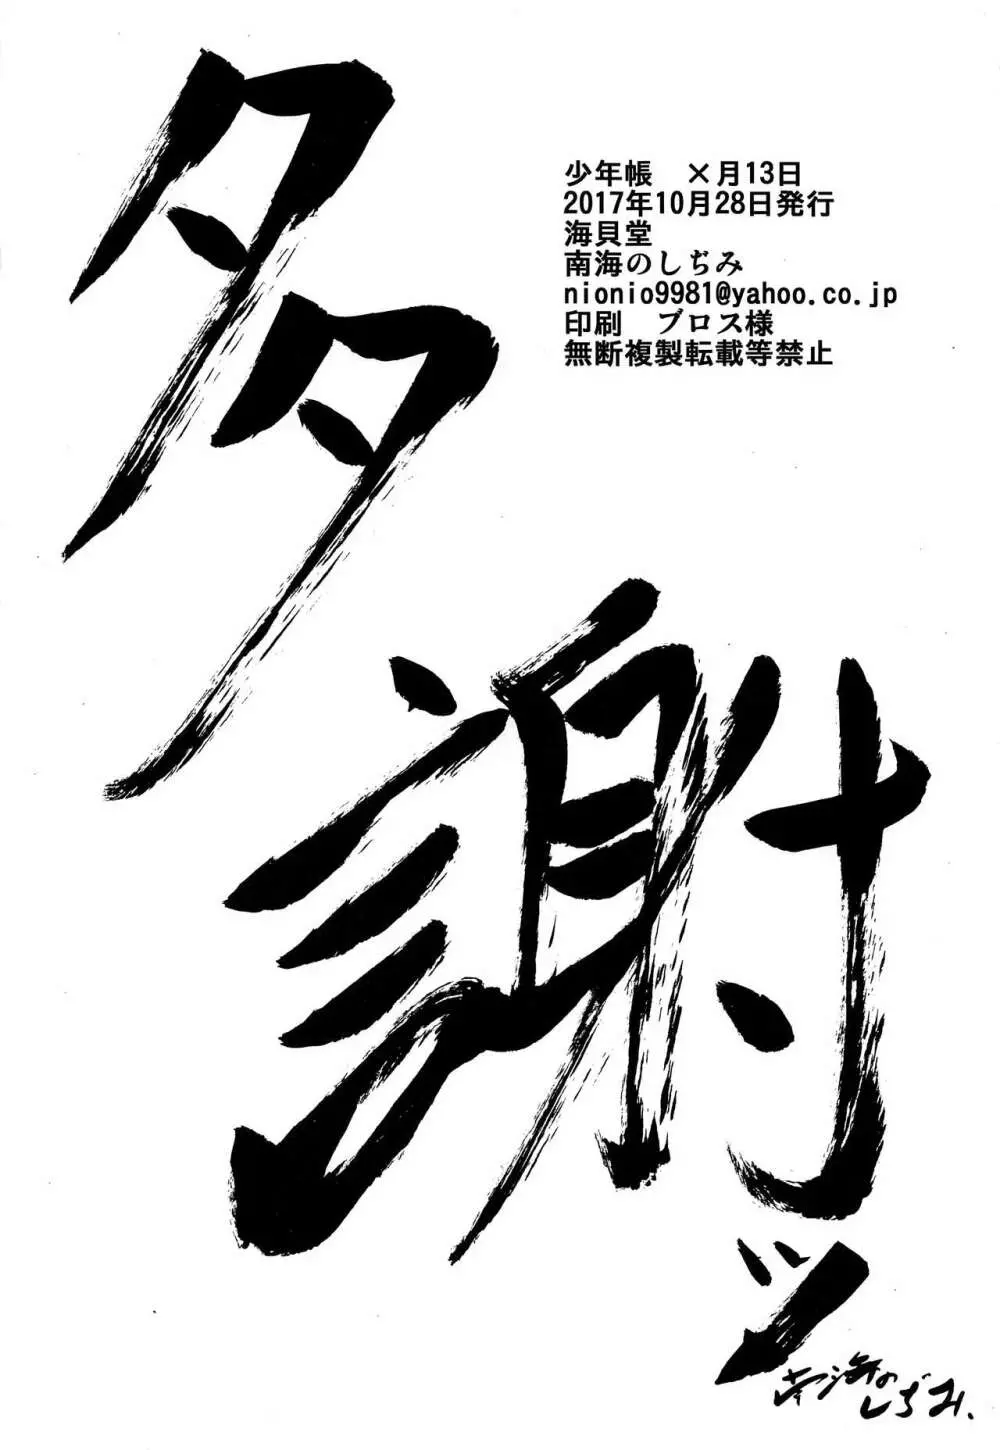 少年帳　×月13日
2017年10月28日発行
海貝堂
南海のしぢみ
nionio9981@yahoo.co.jp
印刷　ブロス様
無断複製転載等禁止
多謝ッ
南海の
しぢみ、